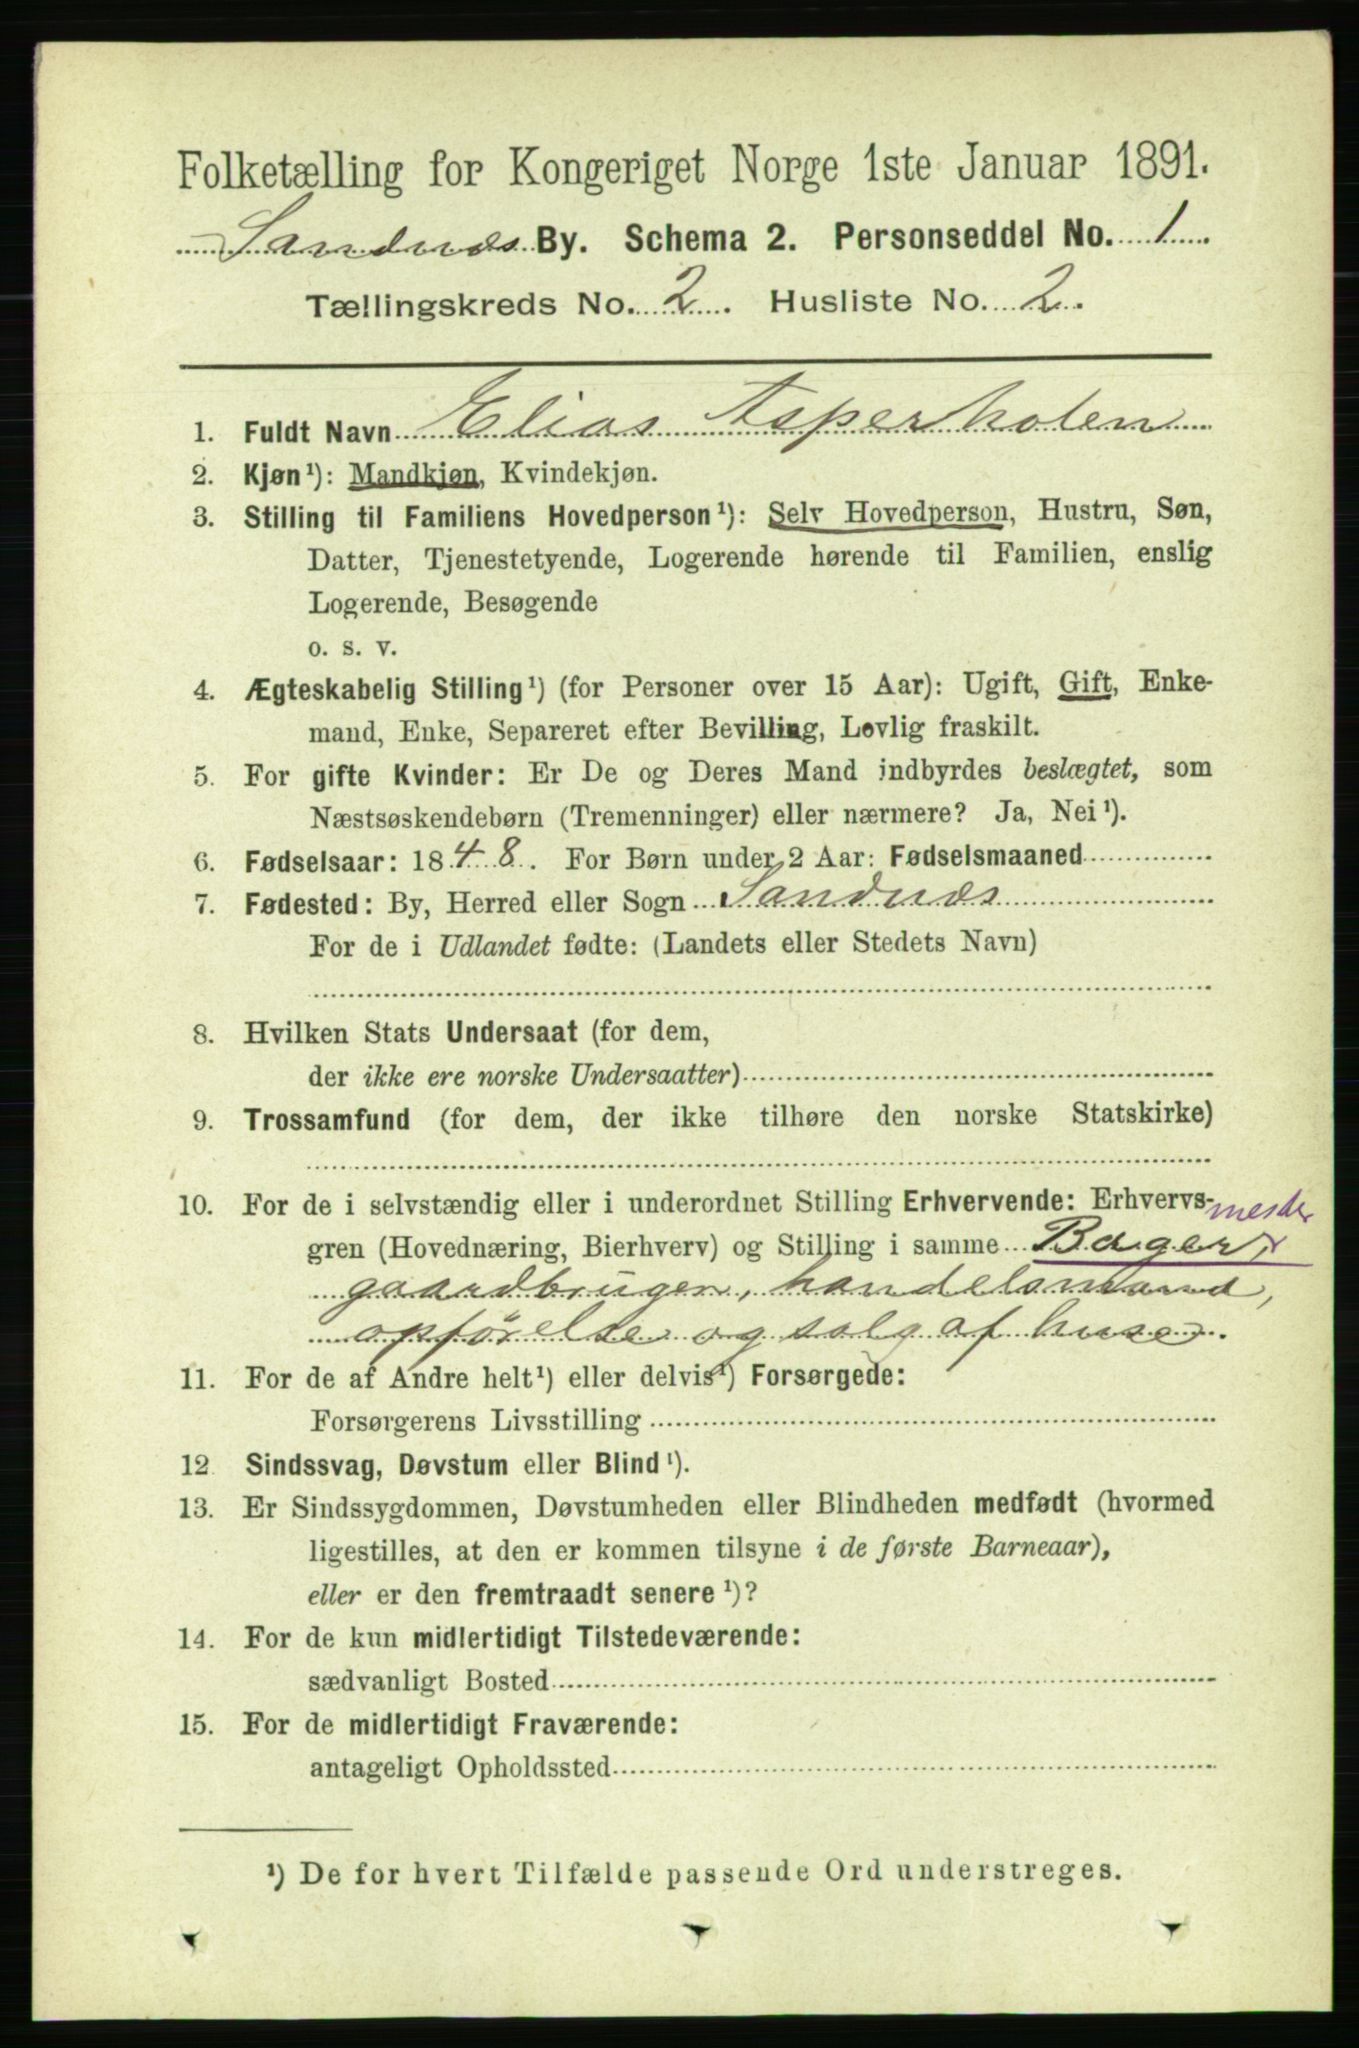 Folketælling for Kongeriget Norge 1ste Januar 1891.
Sandnæs By. Schema 2. Personseddel No. 1
Tællingskreds No. 2. Husliste No. 2.
1. Fuldt Navn Elias Asperholen
2. Kjøn¹): Mandkjøn, Kvindekjøn.
3. Stilling til Familiens Hovedperson¹): Selv Hovedperson, Hustru, Søn,
Datter, Tjenestetyende, Logerende hørende til Familien, enslig
Logerende, Besøgende
o. s. v.
4. Ægteskabelig Stilling¹) (for Personer over 15 Aar): Ugift, Gift, Enke-
mand, Enke, Separeret efter Bevilling, Lovlig fraskilt.
5. For gifte Kvinder: Er De og Deres Mand indbyrdes beslægtet, som
Næstsøskendebørn (Tremenninger) eller nærmere? Ja, Nei¹).
6. Fødselsaar: 1848. For Børn under 2 Aar: Fødselsmaaned
7. Fødested: By, Herred eller Sogn Sandnæs
For de i Udlandet fødte: (Landets eller Stedets Navn)
8. Hvilken Stats Undersaat (for dem,
der ikke ere norske Undersaatter)
9. Trossamfund (for dem, der ikke tilhøre den norske Statskirke)
10. For de i selvstændig eller i underordnet Stilling Erhvervende: Erhvervs- mester
gren (Hovednæring, Bierhverv) og Stilling i samme Bager,
gaardbruger, handelsmand,
opførelse og salg af huse.
11. For de af Andre helt¹) eller delvis¹) Forsørgede:
Forsørgerens Livsstilling
12 Sindssvag, Døvstum eller Blind¹).
13. Er Sindssygdommen, Døvstumheden eller Blindheden medfødt (hvormed
ligestilles, at den er kommen tilsyne i de første Barneaar),
eller er den fremtraadt senere¹)?
14. For de kun midlertidigt Tilstedeværende:
sædvanligt Bosted
15. For de midlertidigt Fraværende:
antageligt Opholdssted
¹) De for hvert Tilfælde passende Ord understreges.